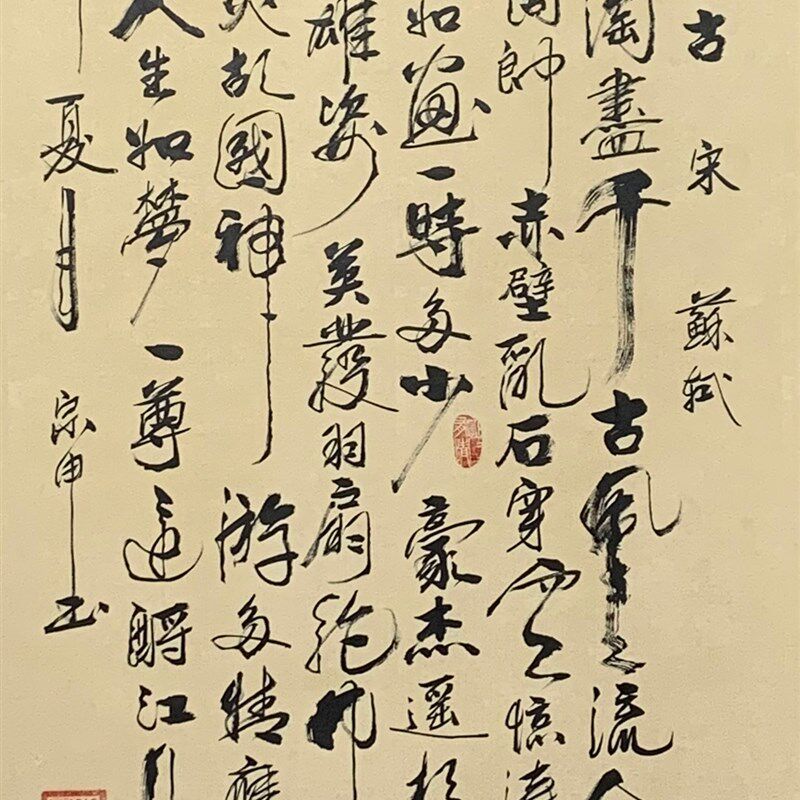 古 宋 蘇軾
淘盡千古風流人
周郎赤壁亂石穿
如畫一時多少豪杰遥想
雄姿英發羽扇綸巾
故國神游多情應
人生如夢一尊還酹江月
夏月 宗申书